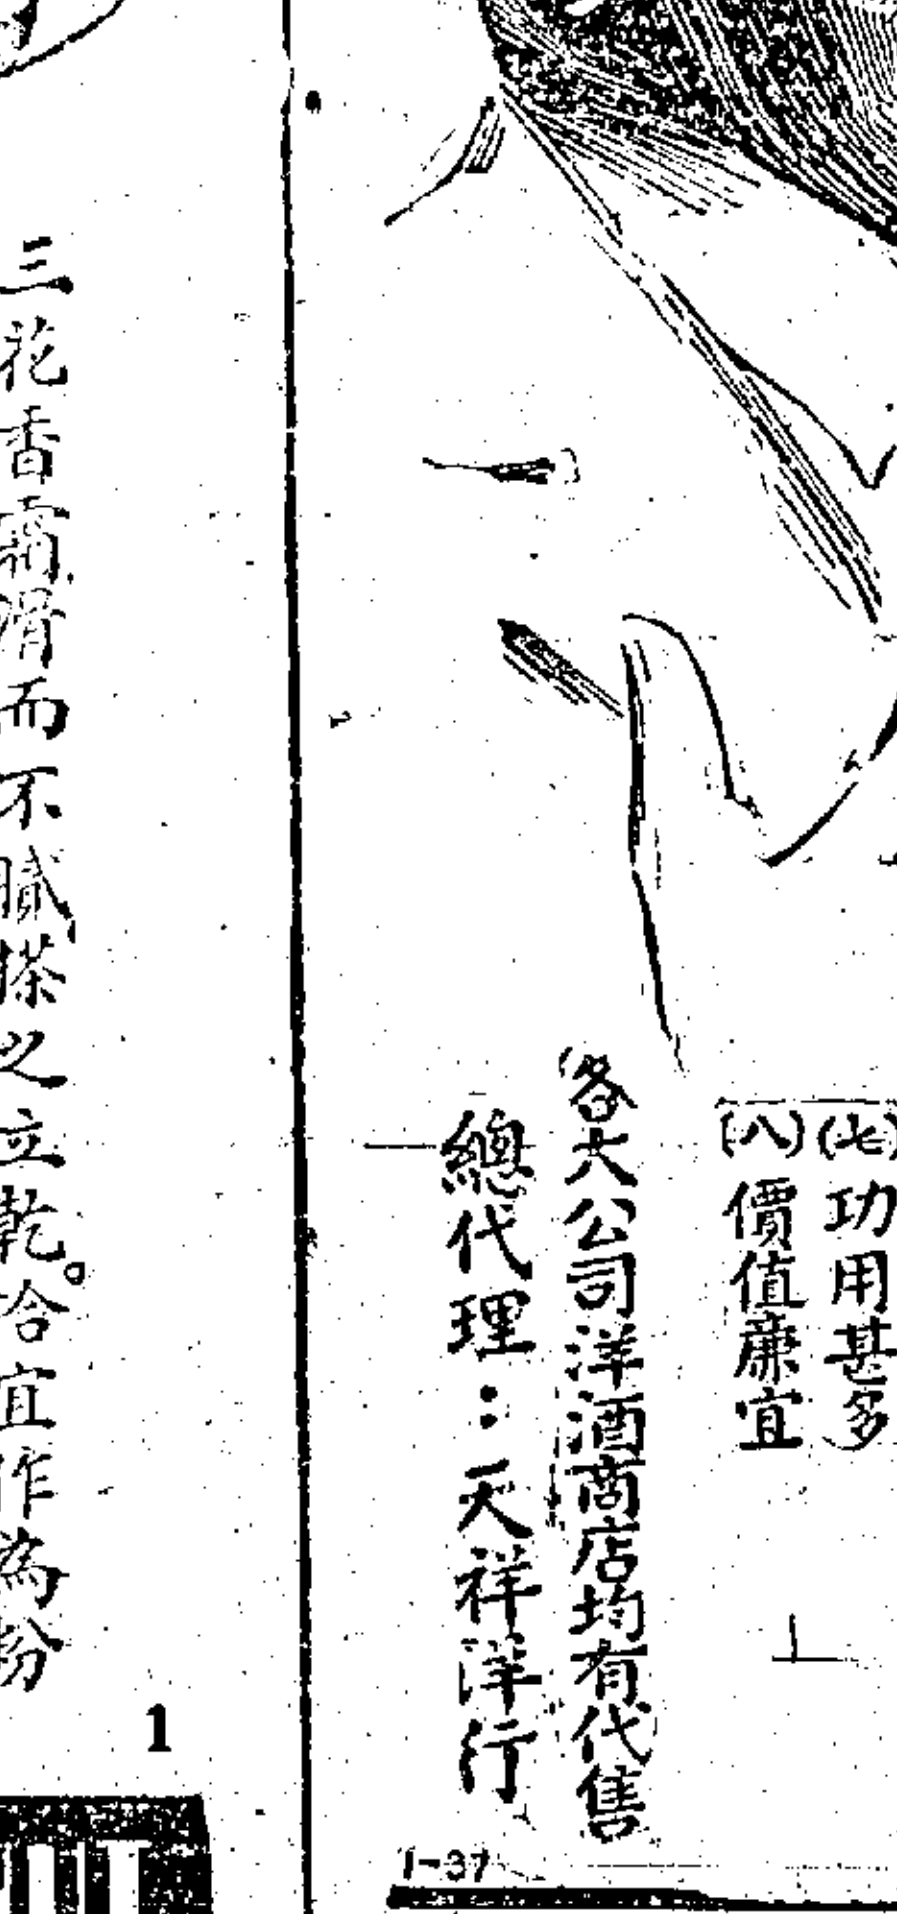 (七)功用甚多
(八)價值廉宜
各大公司洋酒商店均有代售
總代理：天祥洋行
1-37
三花香霜滑而不膩搽之立乾。洽宜作為粉
1